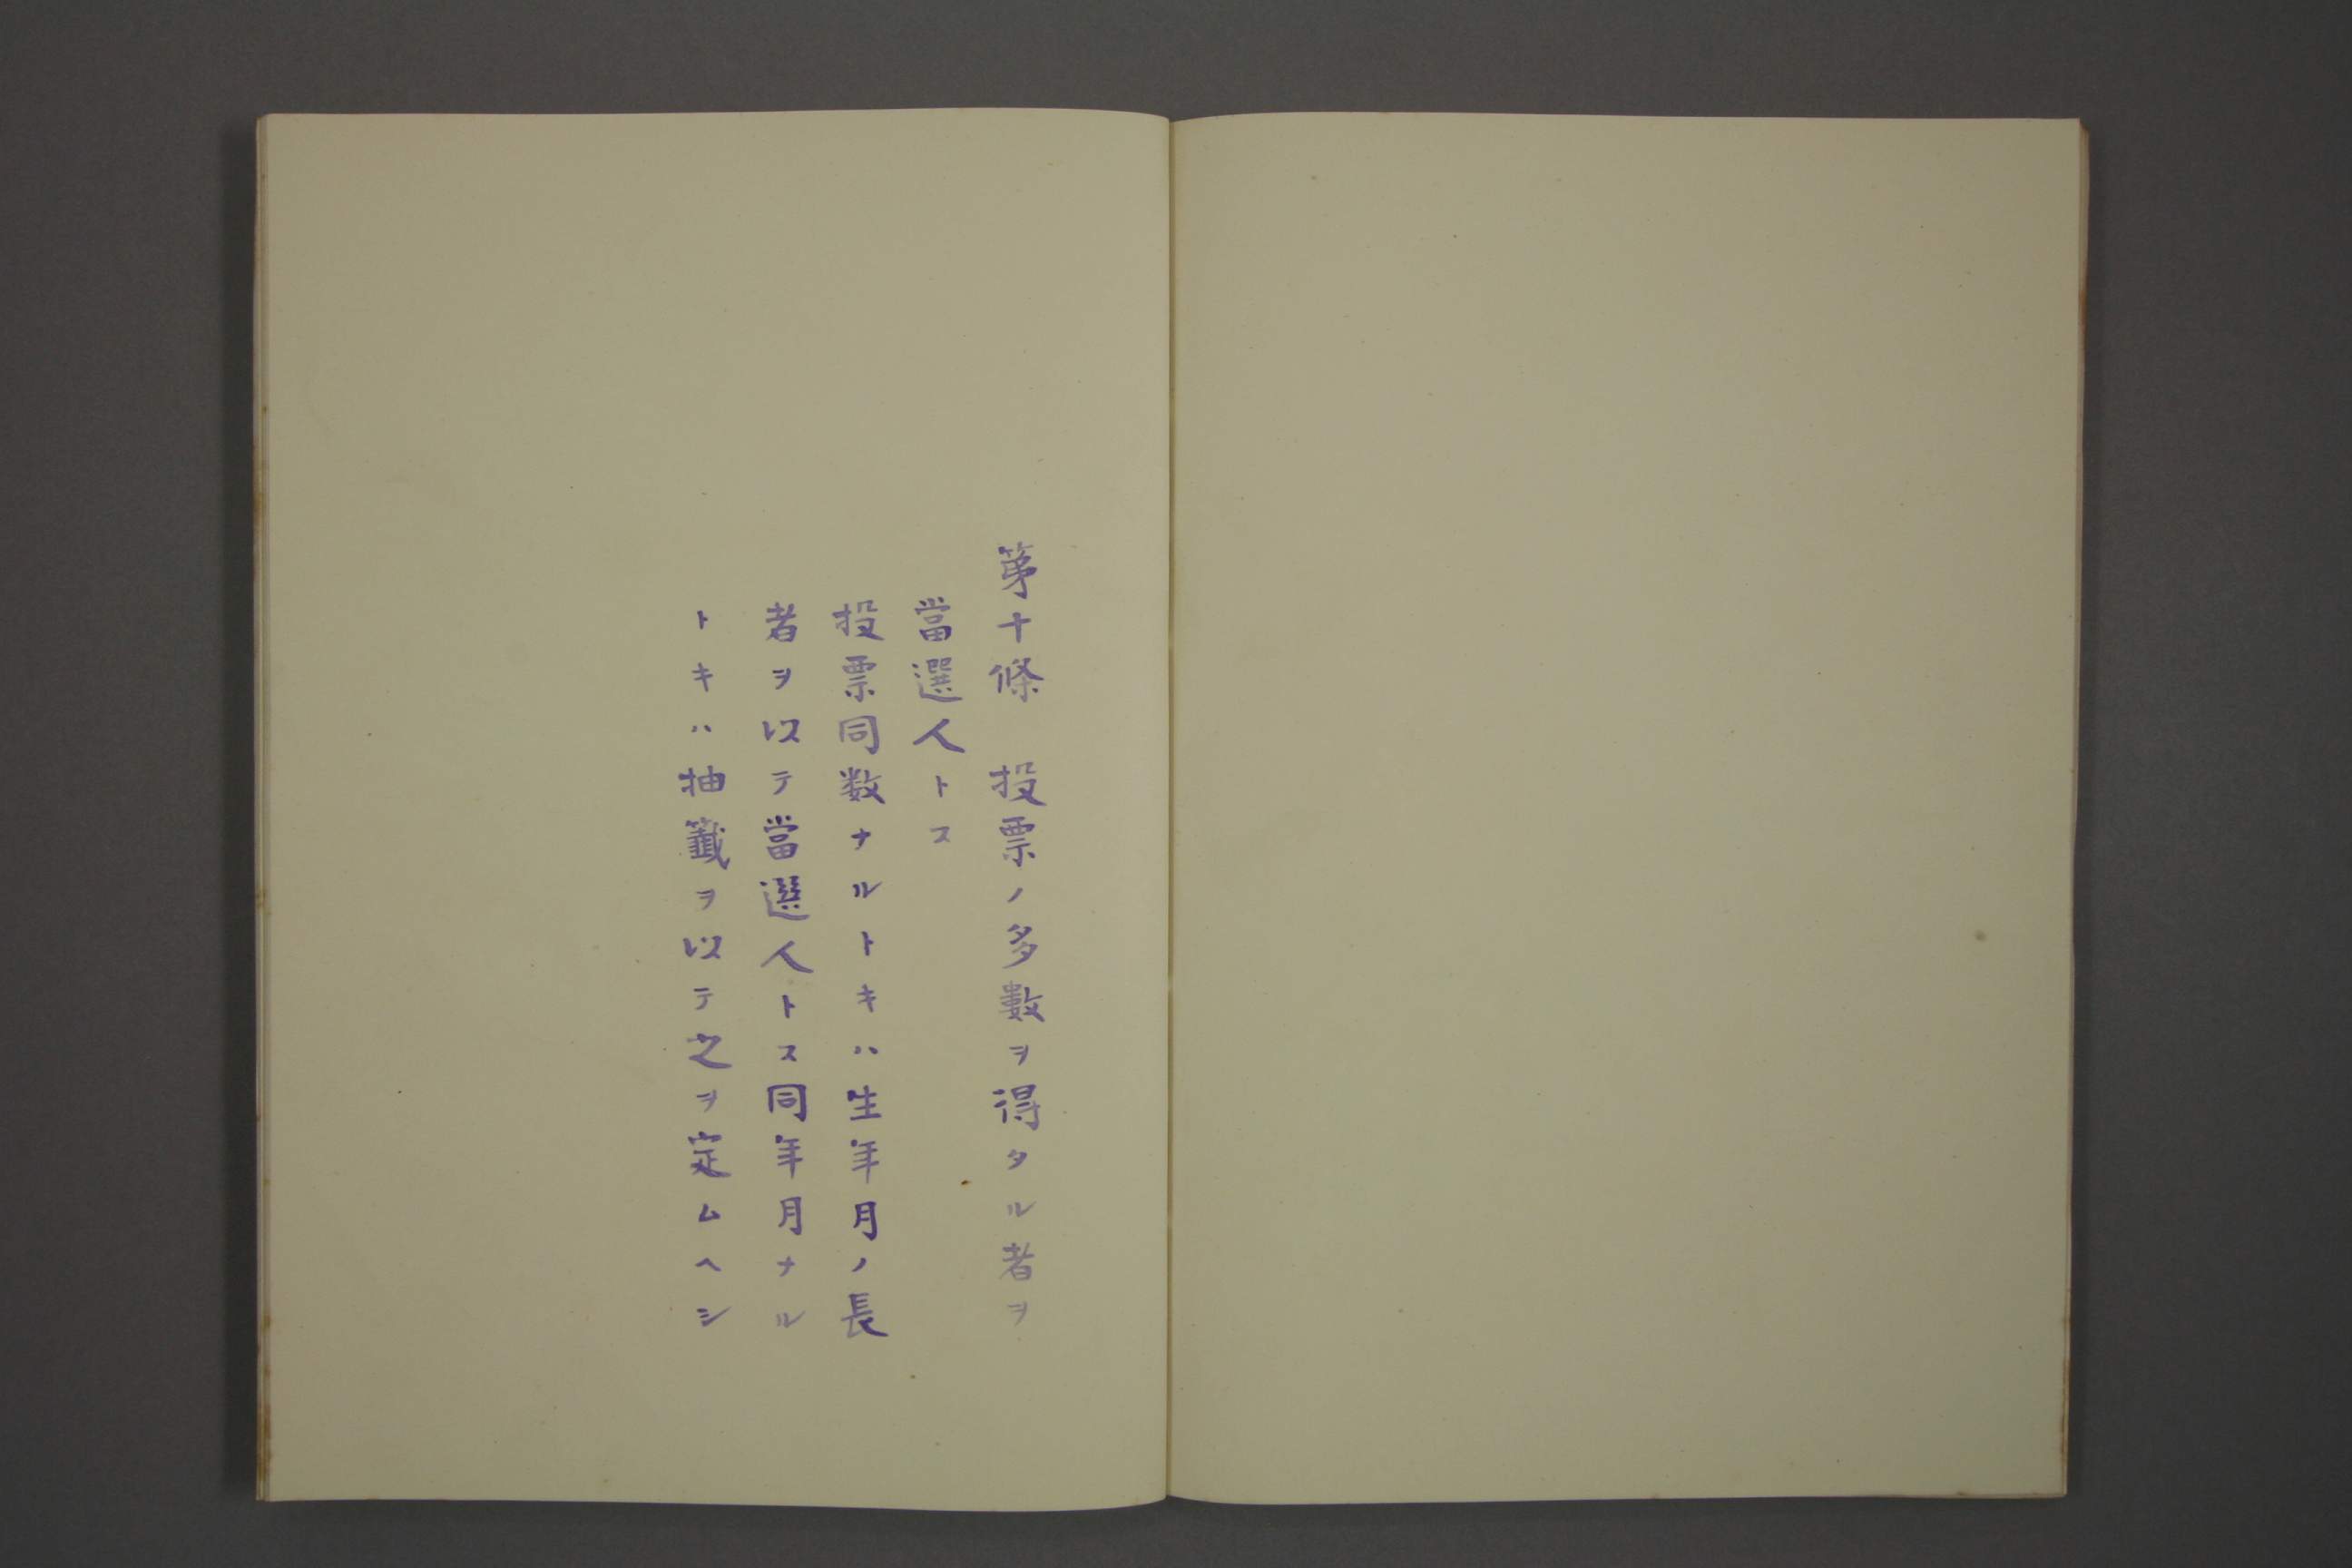 第十條　投票ノ多數ヲ得タル者ヲ
當選人トス
投票同数ナルトキハ生年月ノ長
者ヲ以テ當選人トス同年月ナル
トキハ抽籤ヲ以テ之ヲ定ムヘシ